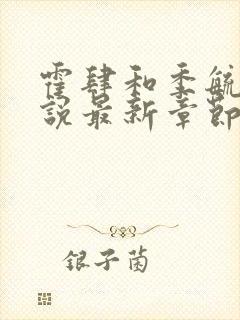 霍肆和季毓
说最新章节
银子菌